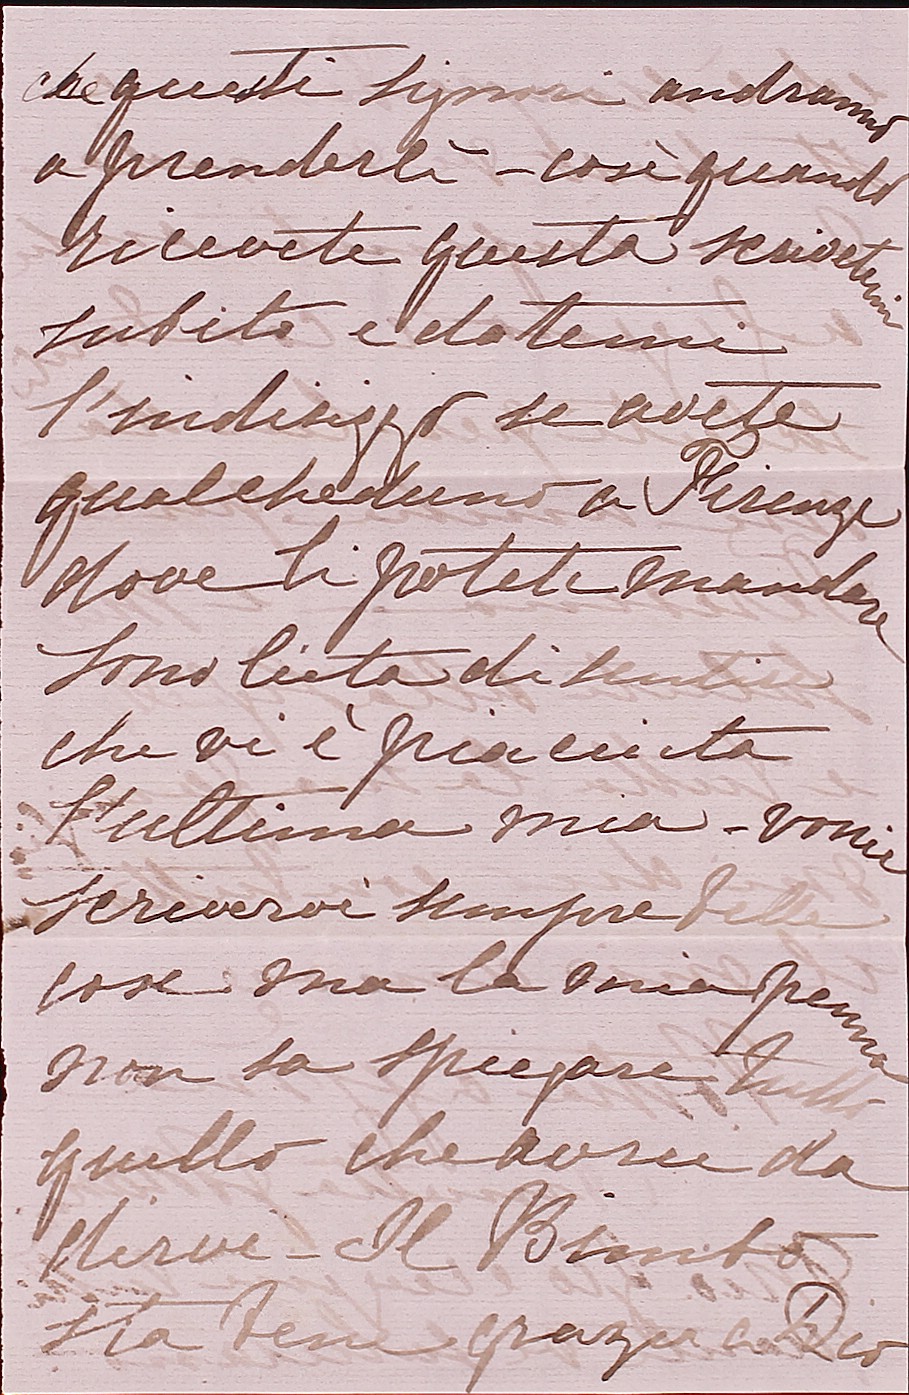 che questi signori andranno
a prenderli - così quando
ricevete questa scrivetemi
subito e datemi
l'indirizzo se avete
qualcheduno a Firenze
dove li potete mandare
sono lieta di sentire
che vi è piaciuta
l'ultima mia - vorrei
scrivervi sempre belle
cose ma la mia penna
non sa spiegare tutto
quello che avrei da
dirvi - Il Bimbo
sta bene grazia a Dio